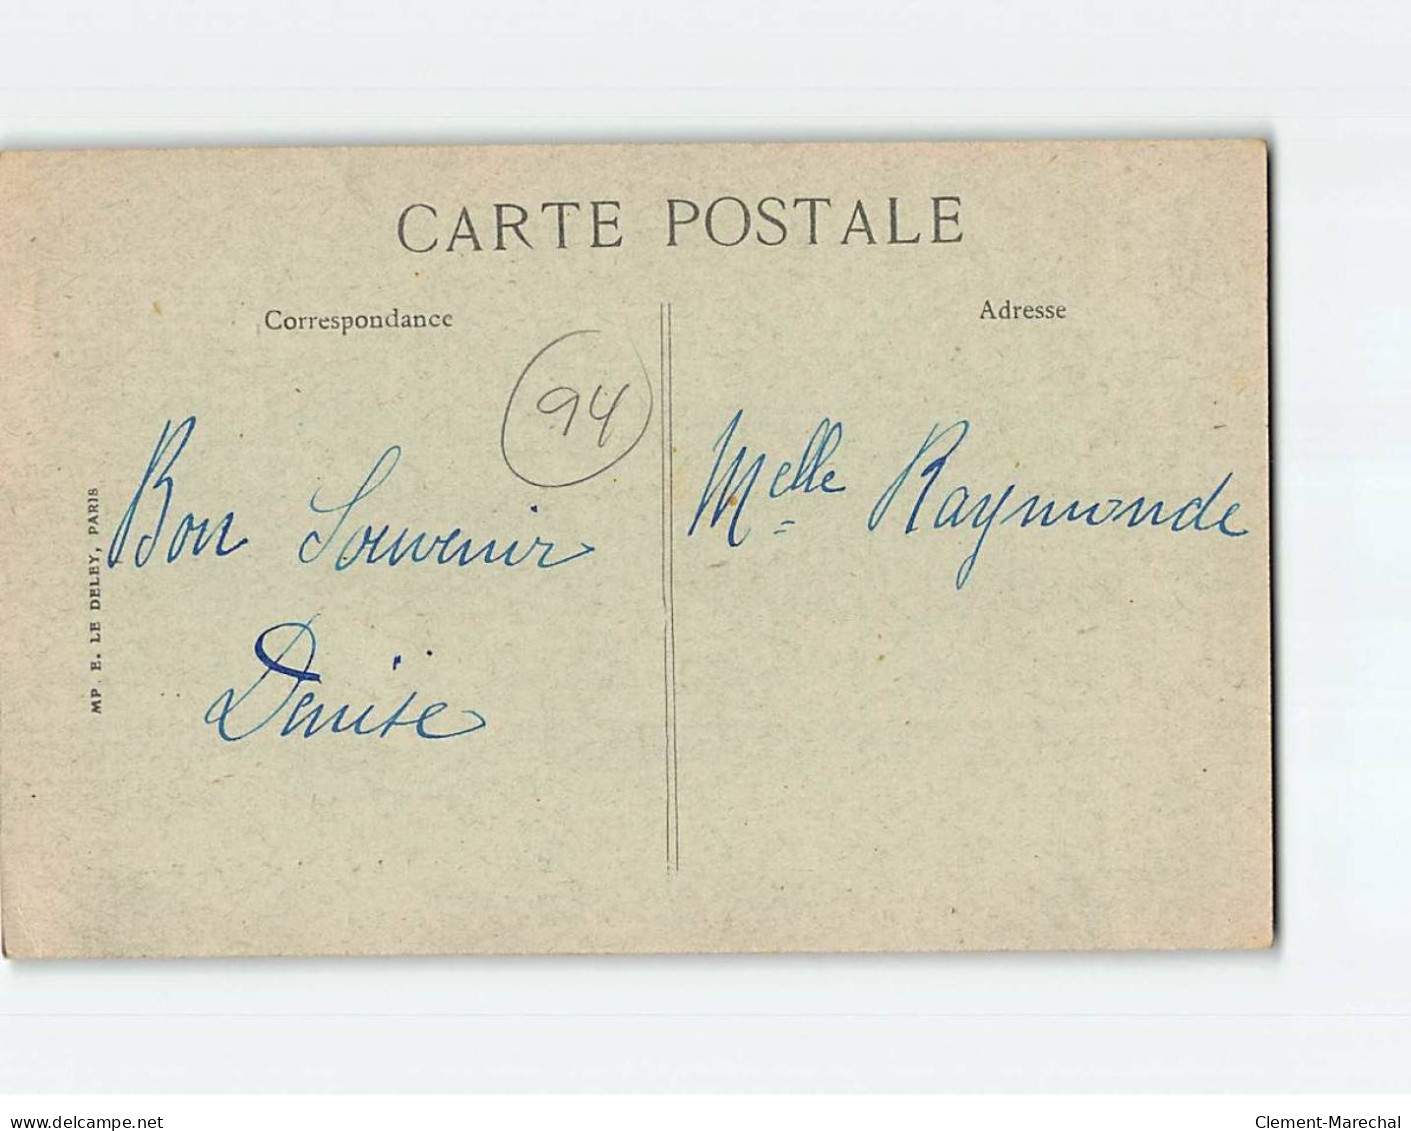 CARTE POSTALE
Correspondance
Adresse
94
Bon Souvenir
Denise
Melle Raymonde
MP. E. LE DELEY, PARIS
www.delcampe.net
Clement-Marechal